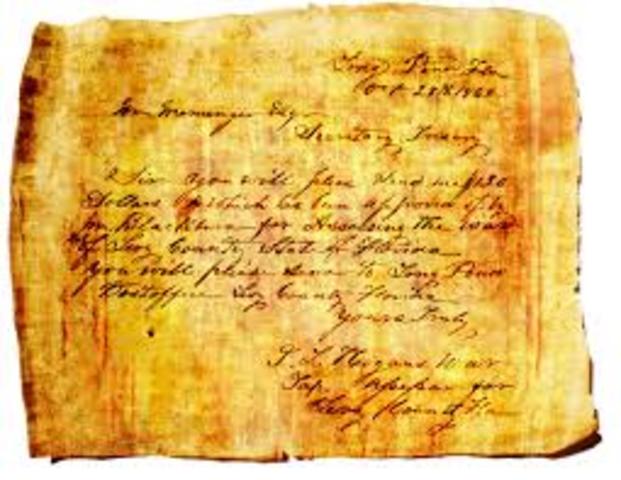 Long Pond Fla
Oct 28th 186
Memminger Esq
Secretary Treasury
Sir you will please send me $130
Dollars which has been approved of by
Blackburn for Assessing the War
of Levy County State of Florida
You will please send to Long Pond
Postoffice Levy County Florida
Yours Truly
War
Tax Assessor for
Levy County Fla